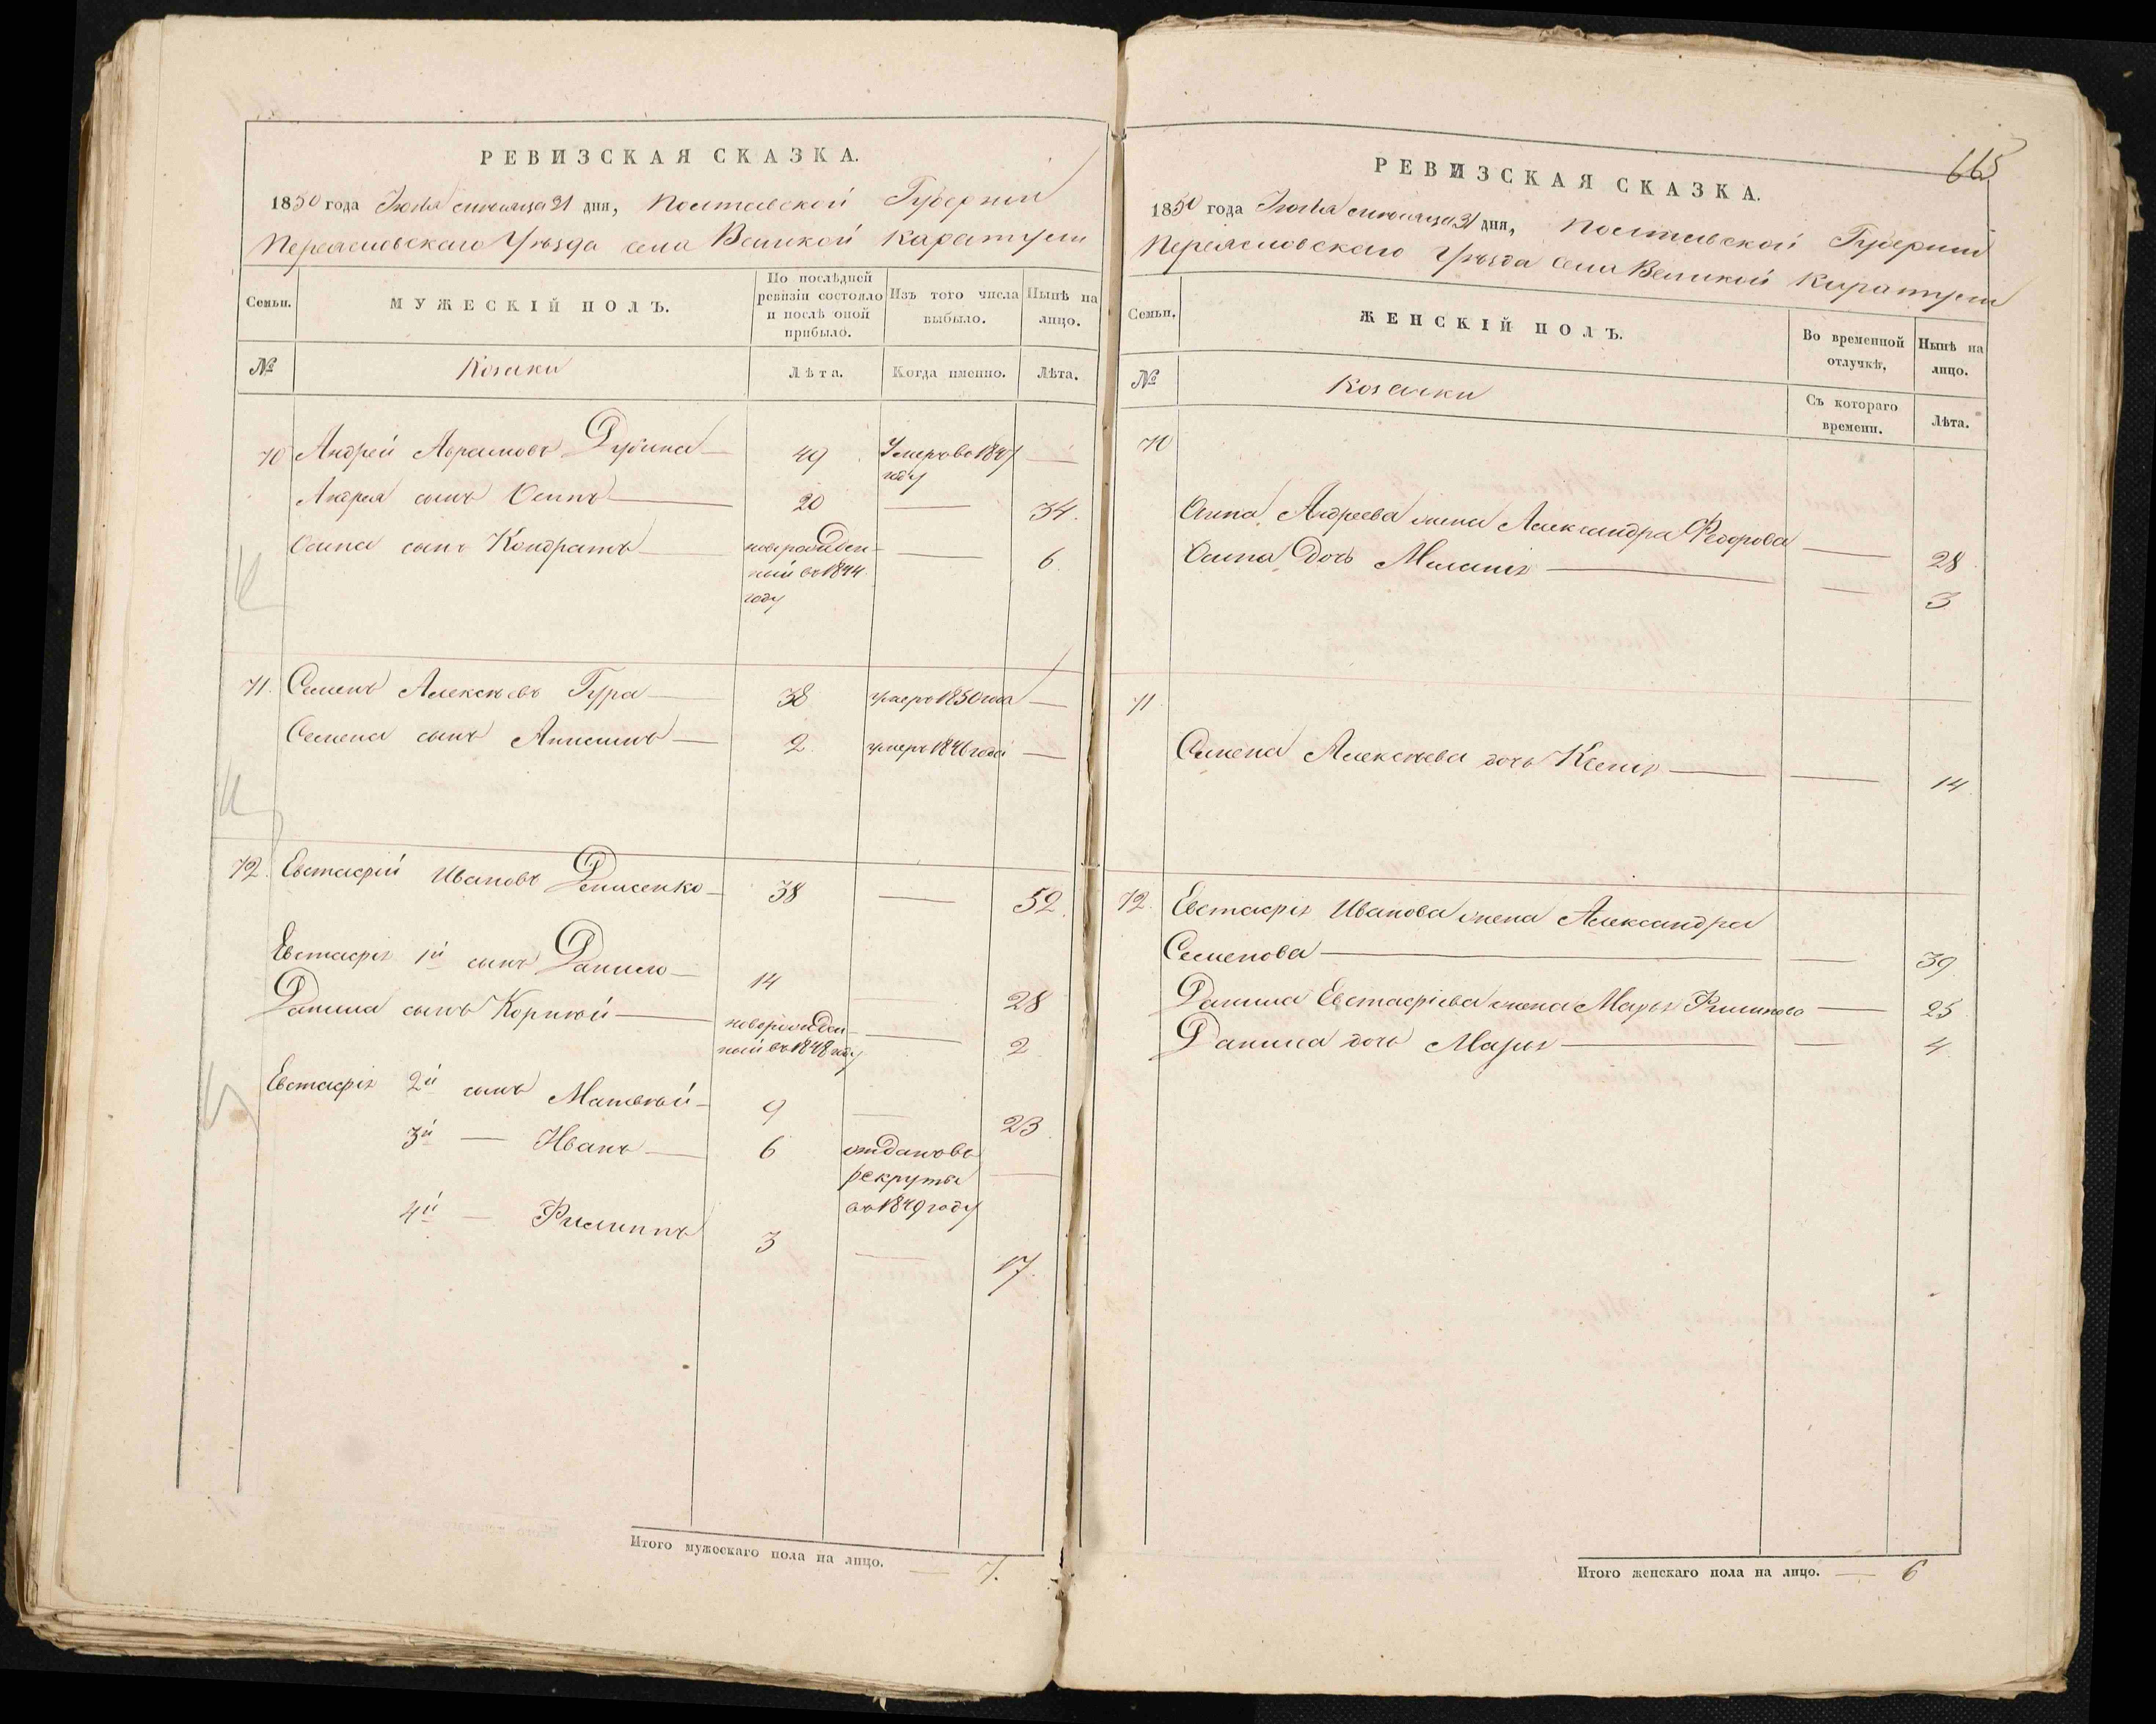 РЕВИЗСКАЯ СКАЗКА.
1850 года Июля месяца 31 дня, Полтавской Губерніи
Переясловскаго Уѣзда села Великой Каратули
Семьи.
МУЖЕСКІЙ ПОЛЪ.
По послѣдней
ревизіи состояло
и послѣ оной
прибыло.
Изъ того числа
выбыло.
Нынѣ на
лицо.
№
Козаки
Лѣта.
Когда именно.
Лѣта.
70 Андрей Абрамовъ Дубина — 49 Умеръ въ 1847 —
году
Андрея сынъ Осипъ — 20 — 34.
Осипа сынъ Кондратъ — новорожден- — 6
ный въ 1844
году
71. Семенъ Алексѣевъ Гура — 38 умеръ 1850 года —
Семена сынъ Анисимъ — 2. умеръ 1846 года —
72. Евстафій Ивановъ Денисенко — 38 — 52.
Евстафія 1й сынъ Данило — 14 — 28
Данила сынъ Корнѣй — новорожден- — 2
ный въ 1848 году
Евстафія 2й сынъ Матвѣй — 9 — 23.
3й — Иванъ — 6 отданъ въ —
рекруты
въ 1849 году
4й — Филиппъ 3 — 17.
Итого мужескаго пола на лицо. — 7.
665
РЕВИЗСКАЯ СКАЗКА.
1850 года Июля месяца 31 дня, Полтавской Губерніи
Переясловскаго Уѣзда села Великой Каратули
Семьи.
ЖЕНСКІЙ ПОЛЪ.
Во временной
отлучкѣ,
Нынѣ на
лицо.
№
Козачки
Съ котораго
времени.
Лѣта.
70
Осипа Андреева жена Александра Федорова — 28
Осипа дочь Меланія — — 3
71
Семена Алексѣева дочь Ксенія — — 14.
72. Евстафія Иванова жена Александра
Семенова — — 39.
Данила Евстафіева жена Марья Филипова — 25
Данила дочь Марья — — 4.
Итого женскаго пола на лицо. — 6